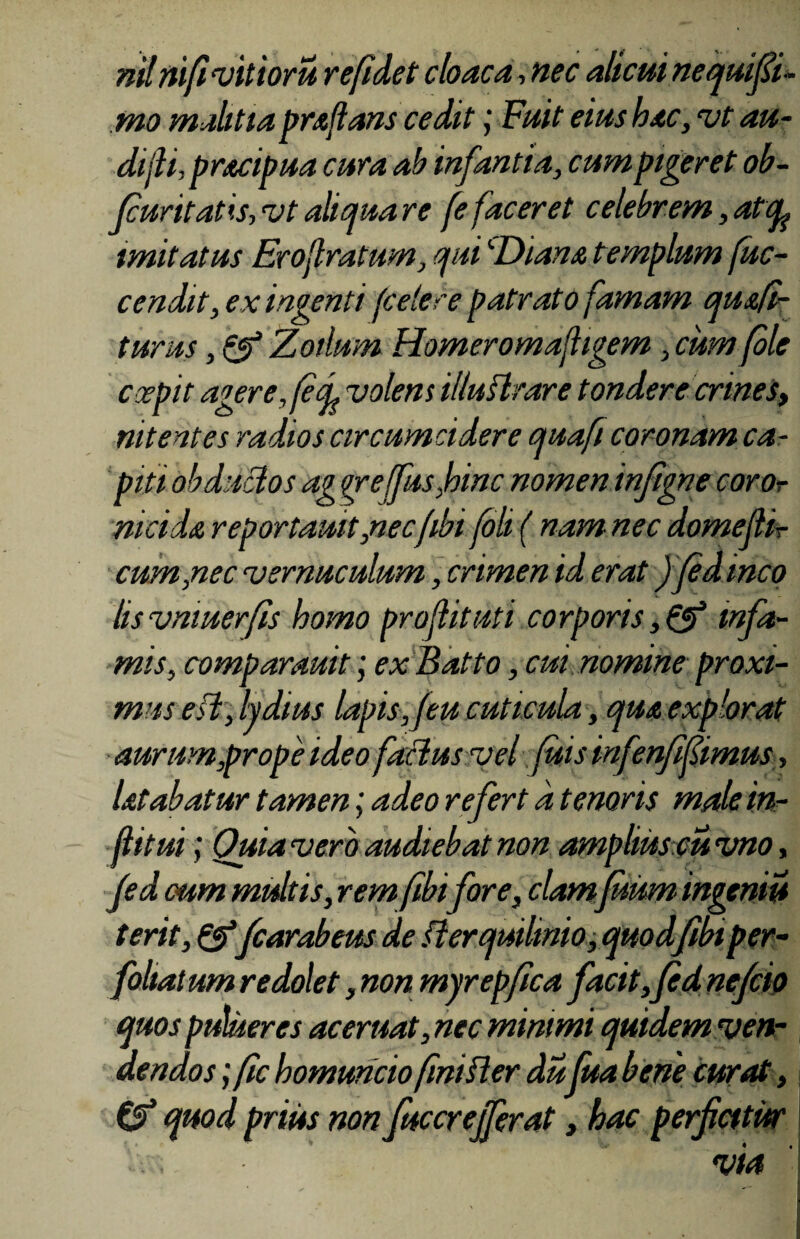 nil niſi vitiorū reſidet cloaca, nec alicui nequiſſi-
mo malitia præſtans cedit; Fuit eius hæc, vt au-
diſti, præcipua cura ab infantia, cum pigeret ob-
ſcuritatis, vt aliquare ſe faceret celebrem, atq́;
imitatus Eroſtratum, qui Dianæ templum ſuc-
cendit, ex ingenti ſcelere patrato famam quæſi-
turus, & Zoilum Homeromaſtigem, cùm ſole
cœpit agere, ſeq́; volens illuſtrare tondere crines,
nitentes radios circumcidere quaſi coronam ca-
piti obductos aggreſſus, hinc nomen inſigne coro-
nicidæ reportauit, nec ſibi ſoli ( nam nec domeſti-
cum, nec vernuculum, crimen id erat ) ſed inco
lis vniuerſis homo proſtituti corporis, & infa-
mis, comparauit; ex Batto, cui nomine proxi-
mus eſt, lydius lapis, ſeu cuticula, quæ explorat
aurum, propè ideo factus vel ſuis infenſiſſimus,
lætabatur tamen; adeo refert à tenoris male in-
ſtitui; Quia verò audiebat non amplius cū vno,
ſed cum multis, rem ſibi fore, clam ſuum ingeniū
terit, & ſcarabeus de ſterquilinio, quod ſibi per-
foliatum redolet, non myrepſica facit, ſed neſcio
quos pulueres aceruat, nec minimi quidem ven-
dendos; ſic homuncio ſiniſter dū ſua benè curat,
& quod priùs non ſuccreſſerat, hac perficitur
via